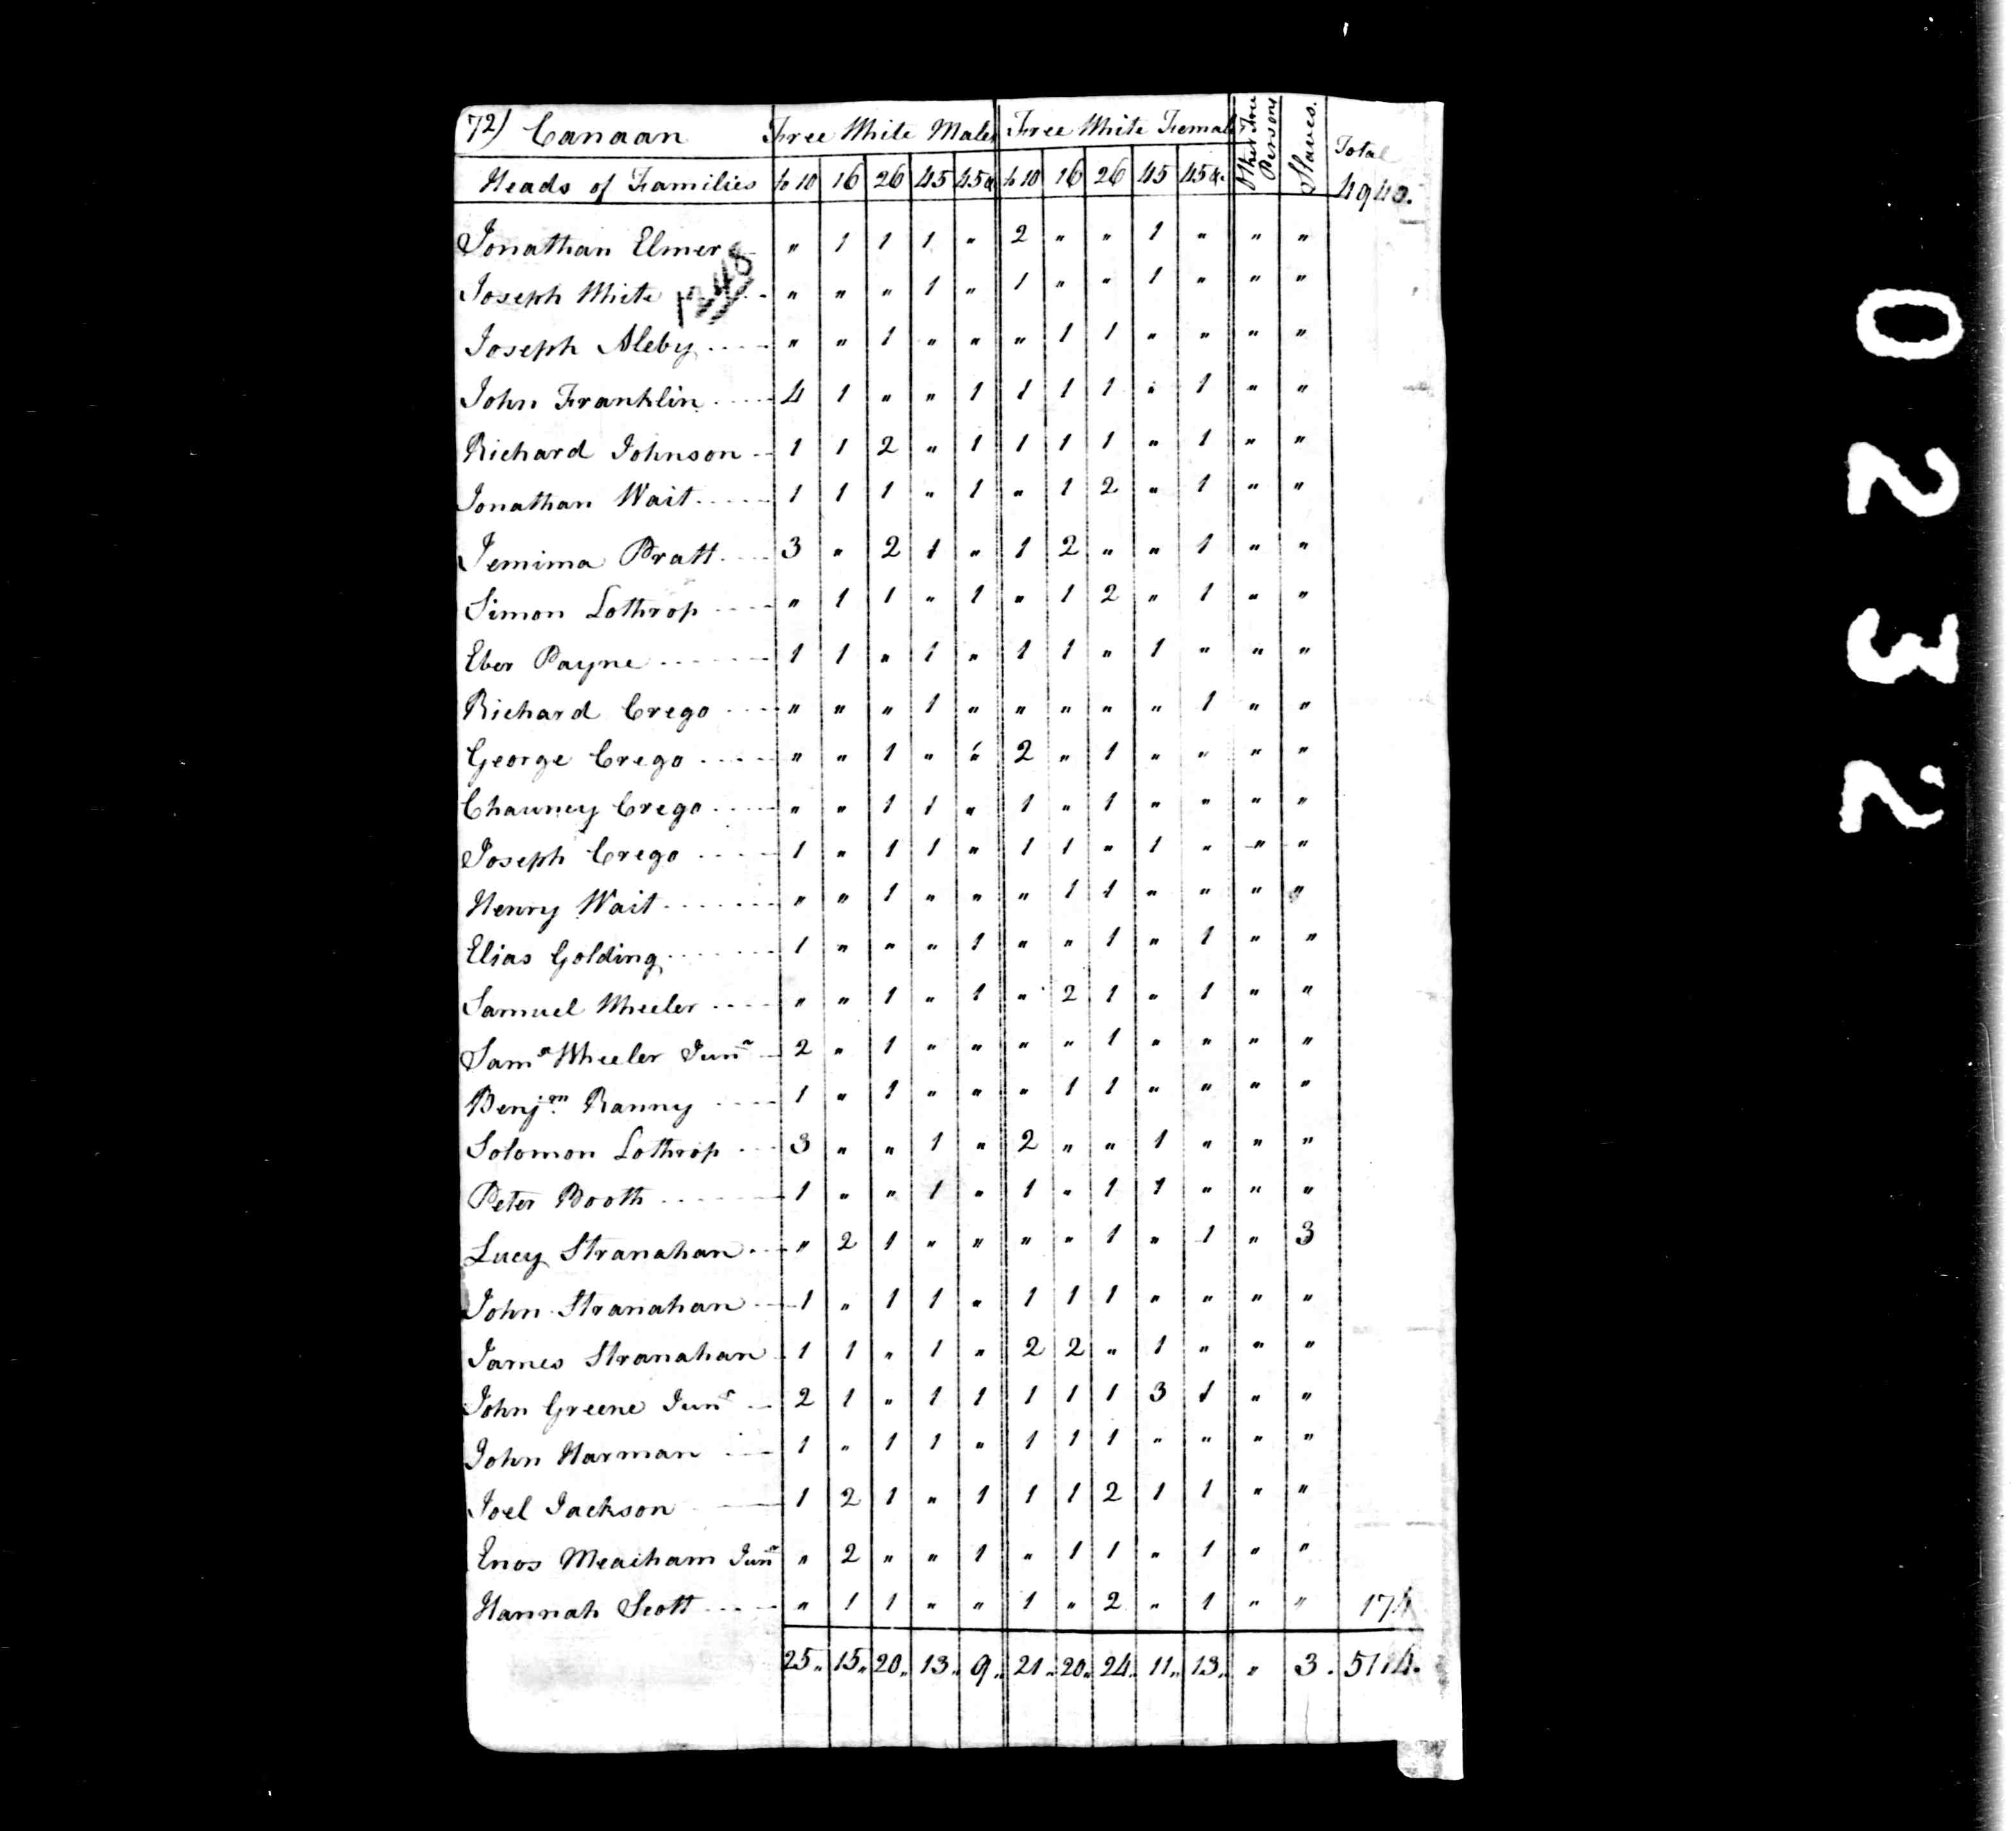 72) Canaan Free White Males Free White Females Other Free Persons Slaves. Total
Heads of Families to 10 16 26 45 45& to 10 16 26 45 45&. 4940.
Jonathan Elmer " 1 1 1 " 2 " " 1 " " "
Joseph White " " " 1 " 1 " " 1 " " "
Joseph Aleby " " 1 " " " 1 1 " " " "
John Franklin 4 1 " " 1 1 1 1 " 1 " "
Richard Johnson 1 1 2 " 1 1 1 1 " 1 " "
Jonathan Wait 1 1 1 " 1 " 1 2 " 1 " "
Jemima Pratt 3 " 2 1 " 1 2 " " 1 " "
Simon Lothrop " 1 1 " 1 " 1 2 " 1 " "
Eber Payne 1 1 " 1 " 1 1 " 1 " " "
Richard Crego " " " 1 " " " " " 1 " "
George Crego " " 1 " " 2 " 1 " " " "
Chauncy Crego " " 1 1 " 1 " 1 " " " "
Joseph Crego 1 " 1 1 " 1 1 " 1 " " "
Henry Wait " " 1 " " " 1 1 " " " "
Elias Golding 1 " " " 1 " " 1 " 1 " "
Samuel Wheeler " " 1 " 1 " 2 1 " 1 " "
Sam Wheeler Junr 2 " 1 " " " " 1 " " " "
Benjan Ranny 1 " 1 " " " 1 1 " " " "
Solomon Lothrop 3 " " 1 " 2 " " 1 " " "
Peter Booth 1 " " 1 " 1 " 1 1 " " "
Lucy Stranahan " 2 1 " " " " 1 " 1 " 3
John Stranahan 1 " 1 1 " 1 1 1 " " " "
James Stranahan 1 1 " 1 " 2 2 " 1 " " "
John Greene Junr 2 1 " 1 1 1 1 1 3 1 " "
John Harman 1 " 1 1 " 1 1 1 " " " "
Joel Jackson 1 2 1 " 1 1 1 2 1 1 " "
Enos Meacham Junr " 2 " " 1 " 1 1 " 1 " "
Hannah Scott " 1 1 " " 1 " 2 " 1 " " 174
25 15 20 13 9 21 20 24 11 13 " 3. 5114.
0232